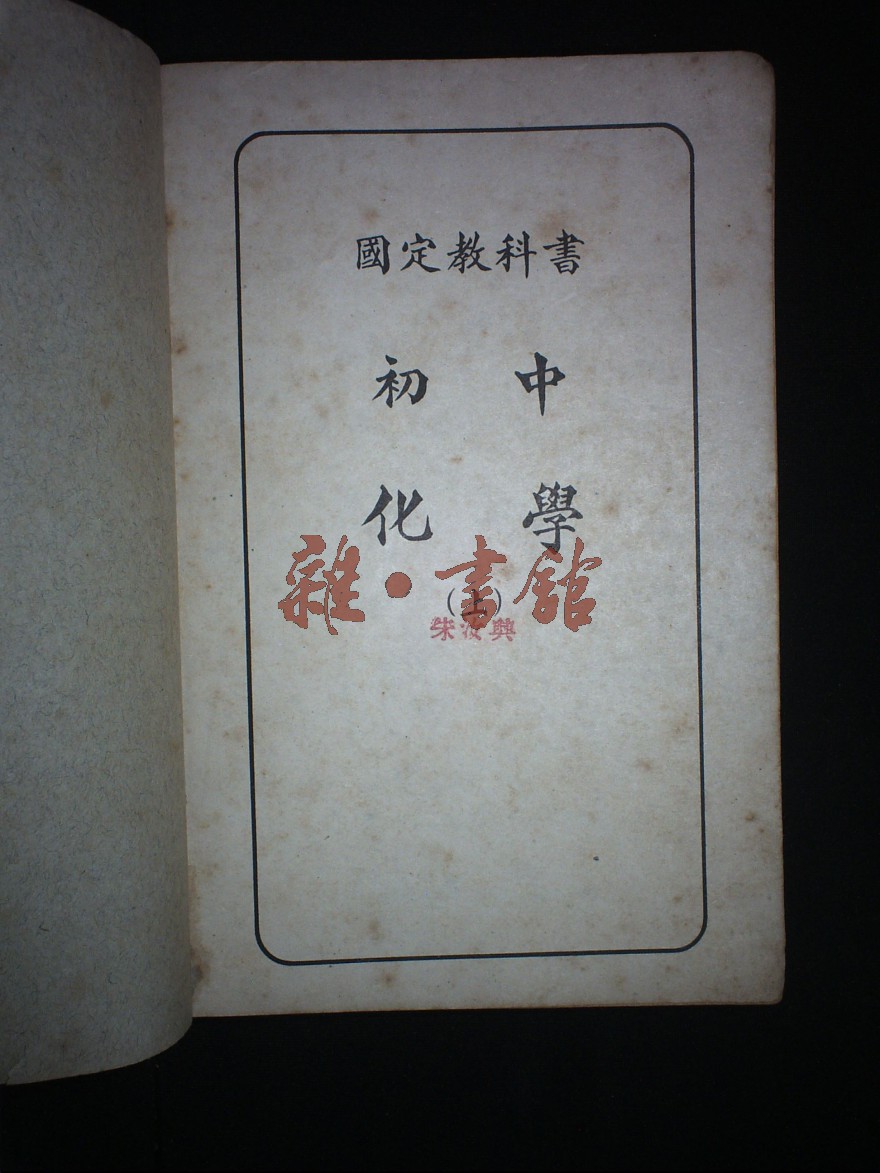 國定教科書
初中
化學
(上)
雜·書館
朱汝興